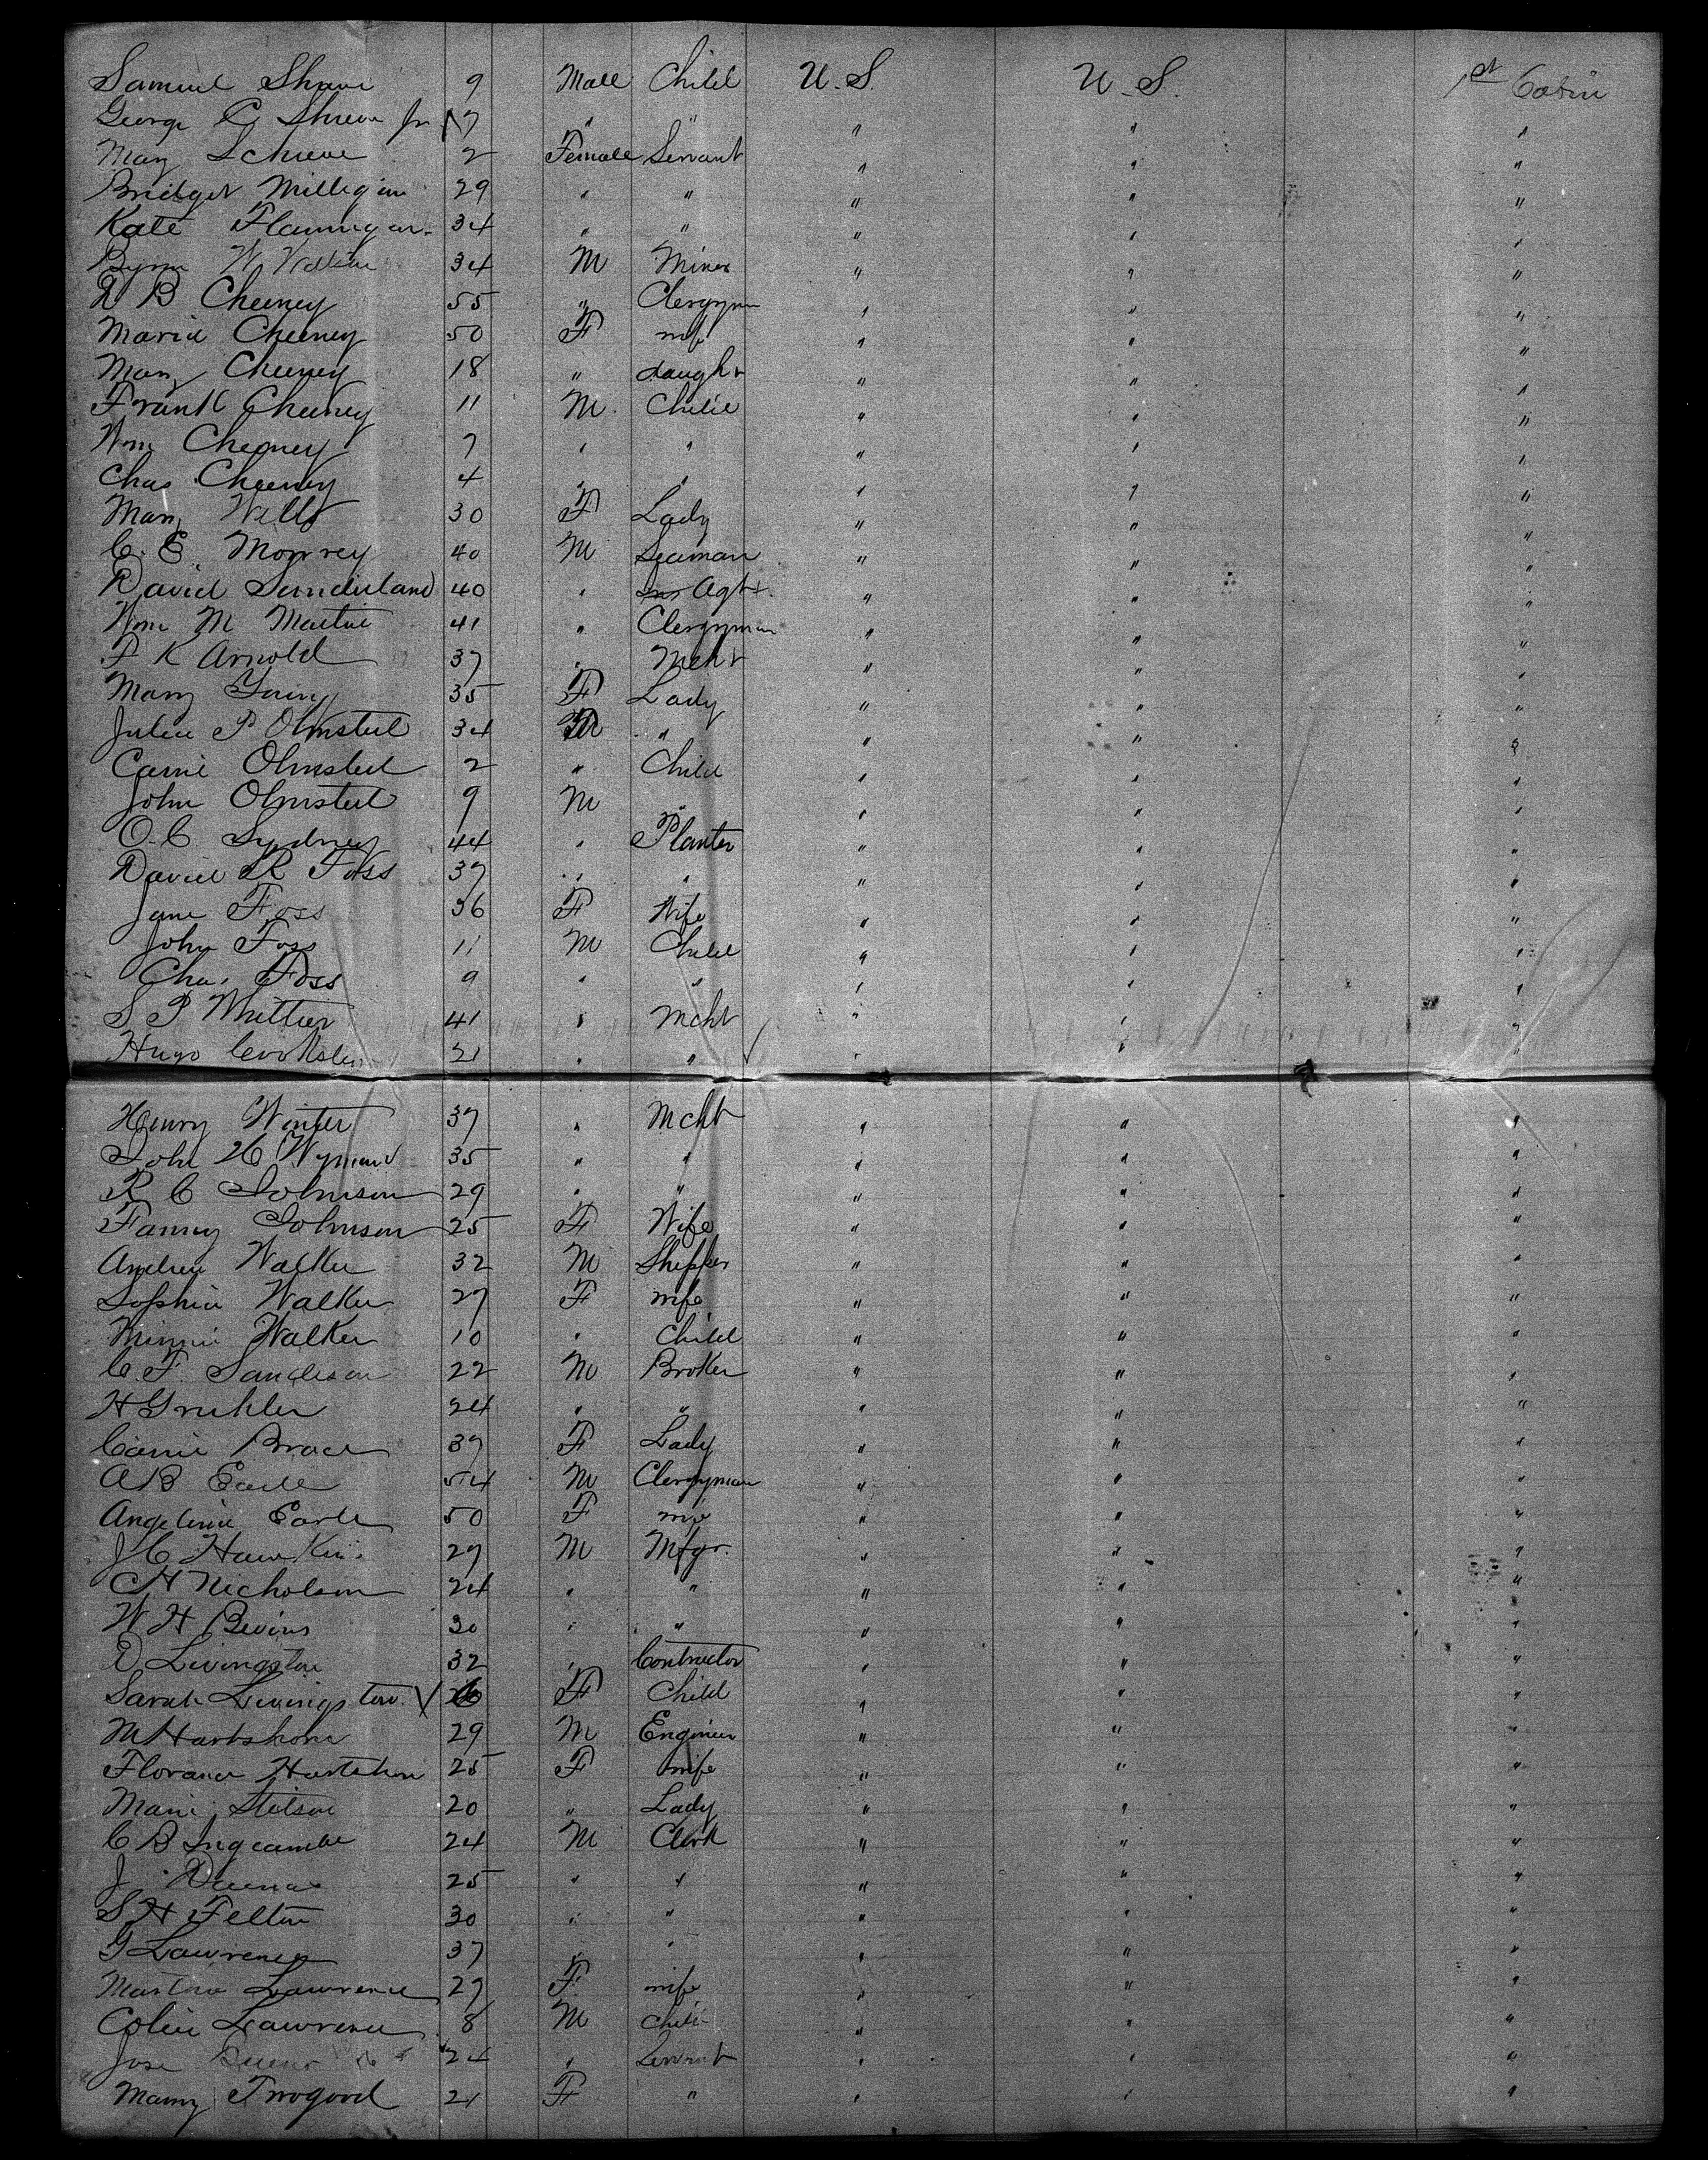 Samuel Shreve 9 Male Child U.S. U.S. 1st Cabin
George C Shreve Jr 7 " " " " "
Mary Schreve 2 Female Servant " " "
Bridget Milligan 29 " " " " "
Kate Flannigan 34 " " " " "
34 M Miner " " "
D B Cheeney 55 " Clergyman " " "
Maria Cheeney 50 F wife " " "
Mary Cheeney 18 " daught " " "
Frank Cheeney 11 M. Child " " "
Wm Cheeney 7 " " " " "
Chas Cheeney 4 " " " " "
Mary Wells 30 F Lady " " "
C. E. Mowrey 40 M Seaman " " "
David Sunderland 40 " Ins Agt " " "
Wm M Martin 41 " Clergyman " " "
F K Arnold 37 " Mcht " " "
Mary Young 35 F Lady " " "
Julia P Olmsted 34 " " " "
Carrie Olmsted 2 " Child " " "
John Olmsted 9 M " " " "
O. C. Sydney 44 " Planter " " "
David R Foss 37 " " " " "
Jane Foss 36 F Wife " " "
John Foss 11 M Child " " "
Chas Foss 9 " " " " "
S P Whittier 41 " Mcht " " "
Hugo 21 " " " " "
Henry Winter 37 " Mcht " " "
John H Wyman 35 " " " " "
R C Johnson 29 " " " " "
Fanny Johnson 25 F Wife " " "
Andrew Walker 32 M Shipper " " "
Sophia Walker 27 F wife " " "
Minnie Walker 10 " Child " " "
C. F. Sanderson 22 M Broker " " "
H 24 " " " " "
Carrie Brace 37 F Lady " " "
A B Earle 54 M Clergyman " " "
Angeline Earle 50 F wife " " "
J C Hawkins 27 M Mfgr. " " "
C H Nicholson 24 " " " " "
W H Bevins 30 " " " " "
D Livingston 32 " Contractor " " "
Sarah Livingston F Child " " "
M Hartshorn 29 M Engineer " " "
Florance Hartshorn 25 F wife " " "
Marie Stetson 20 " Lady " " "
C B 24 M Clerk " " "
J 25 " " " " "
S H Felton 30 " " " " "
G Lawrence 37 " " " " "
Lawrence 27 F wife " " "
Colin Lawrence 8 M Child " " "
Jose 24 " Servant " " "
Mamy Twogood 21 F " " " "